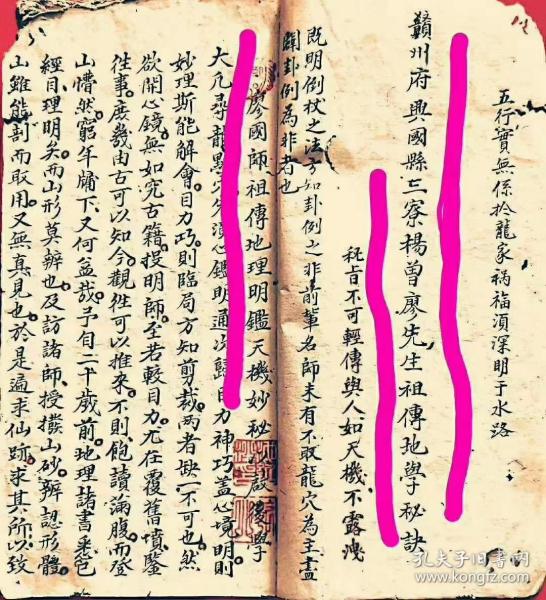 五行實無係於龍家禍福須深明于水路
贛州府興國縣三寮楊曾廖先生祖傳地學秘訣
秘旨不可輕傳與人如天機不露洩
既明倒杖之法方知卦例之非前輩名師未有不取龍穴為主盖
闢卦例為非者也
廖國師祖傳地理明鑑天機妙秘
大凡尋龍點穴先須心鏡明通次歸目力神巧盖心境明則
妙理斯能解會目力巧則臨局方知剪裁両者缺一不可也然
欲開心鏡無如究古籍授明師至若較目力尤在覆舊墳鑒
往事庶幾由古可以知今觀往可以推來不則飽讀滿腹而登
山懵然窮年牖下又何益哉予自二十歲前地理諸書悉已
經目理明矣而山形莫辨也及訪諸師授撥山砂辨認形體
山雖能割而取用又無真見也於是遍求仙跡求其所以致
孔夫子旧书网
kongfz.com